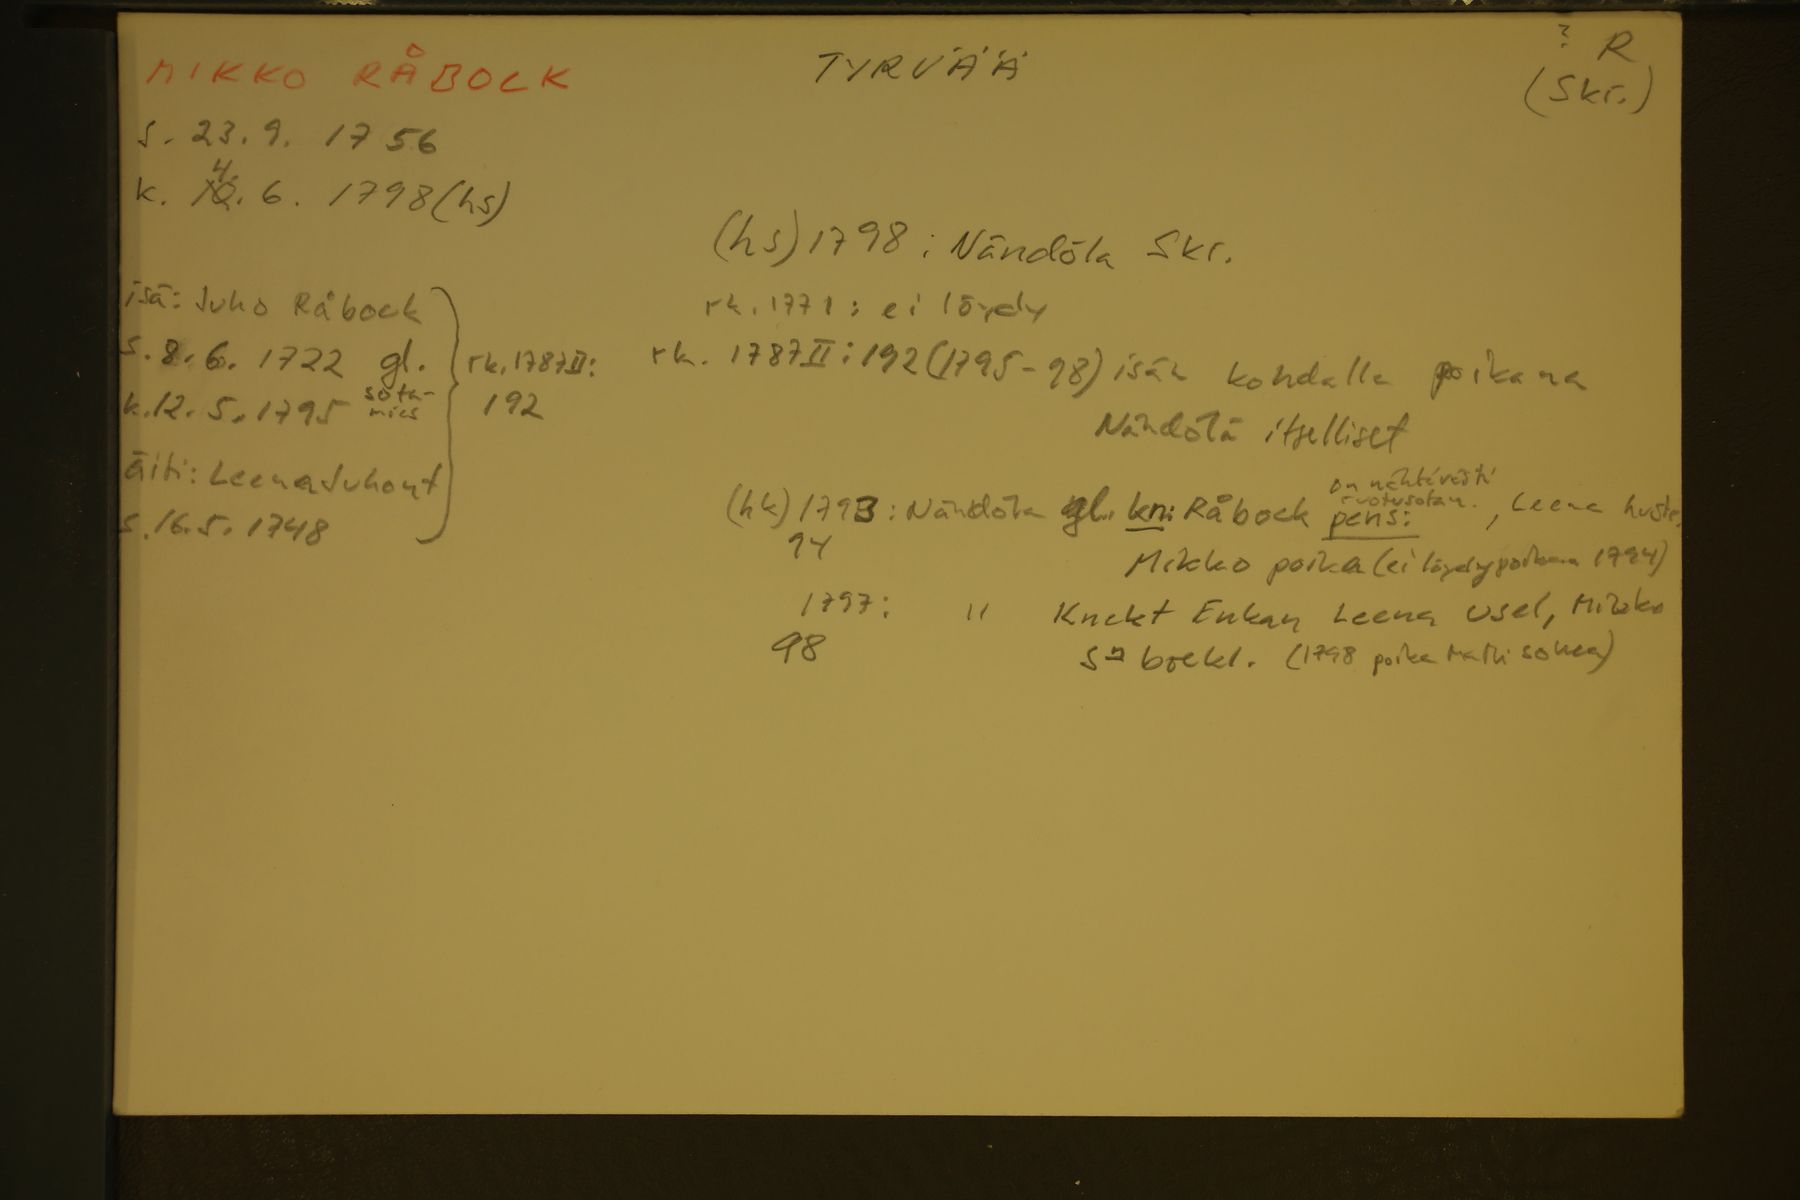 MIKKO RÅBOCK
TYRVÄÄ
? R
(Skr.)
s. 23. 9. 1756
4.
k. 10. 6. 1798 (hs)
(hs) 1798 : Nändölä Skr.
isä: Juho Råbock
s. 8. 6. 1722 gl.
sota-
mies
k. 12. 5. 1795
rk. 1787 II:
192
äiti: Leena Juhont
s. 16. 5. 1748
rk. 1771 : ei löydy
rk. 1787 II : 192 (1795-98) isän kohdalla poikana
Nändölä itselliset
on nähtävästi
ruotusotam.
(hk) 1793 : Nändölä gl. kn: Råbock pens: , Leena hustr.
94
Mikko poika (ei löydy poikaa 1794)
1797 : " Knekt Enkan Leena usel, Mikko
98
Sn bräckl. (1798 poika Matti sokea)